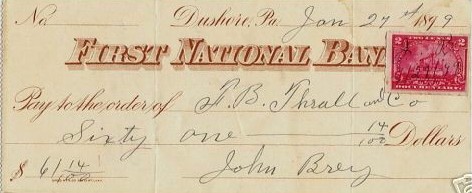 No. Dushore, Pa. Jan 27th 1899
FIRST NATIONAL BANK
2 TWO CENTS 2
DOCUMENTARY
Pay to the order of F. B. Thrall and Co
Sixty one 14/100 Dollars
$ 61 14/100 John Brey